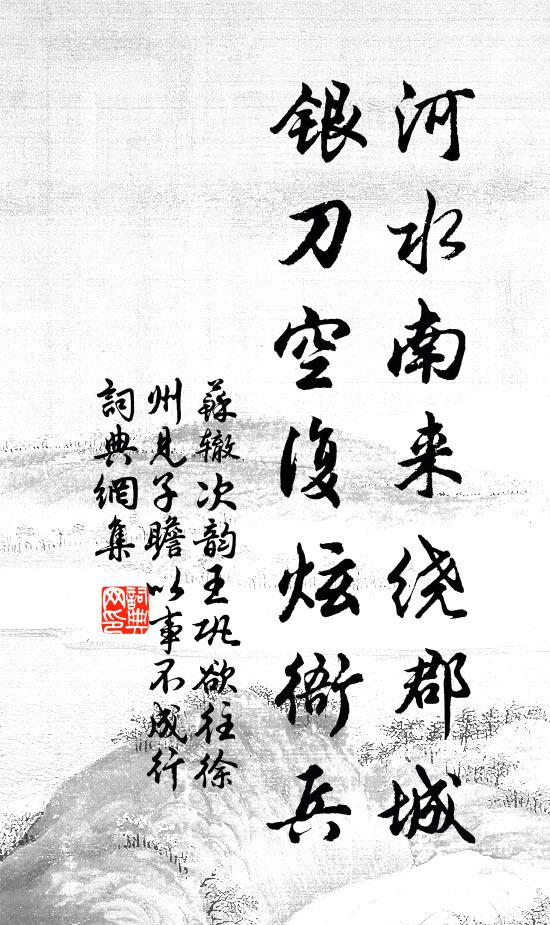 河水南来绕郡城
银刀空復炫衙兵
蘇辙次韵王巩欲往徐
州见子瞻以事不成行
詞典網集
詞典網印